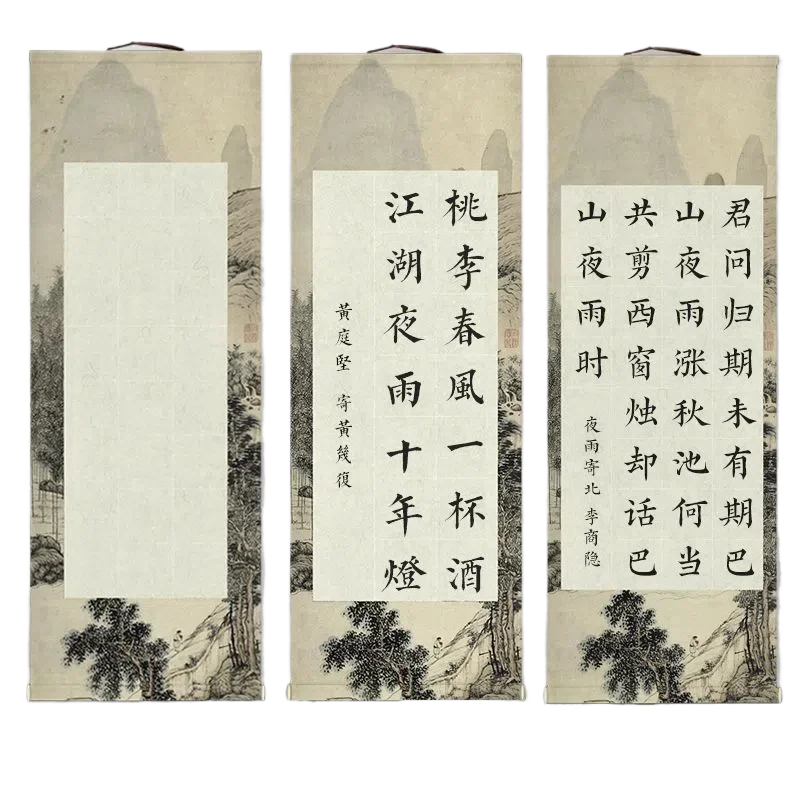 桃李春風一杯酒
江湖夜雨十年燈
黃庭堅 寄黃幾復
君问归期未有期巴
山夜雨涨秋池何当
共剪西窗烛却话巴
山夜雨时
夜雨寄北 李商隐